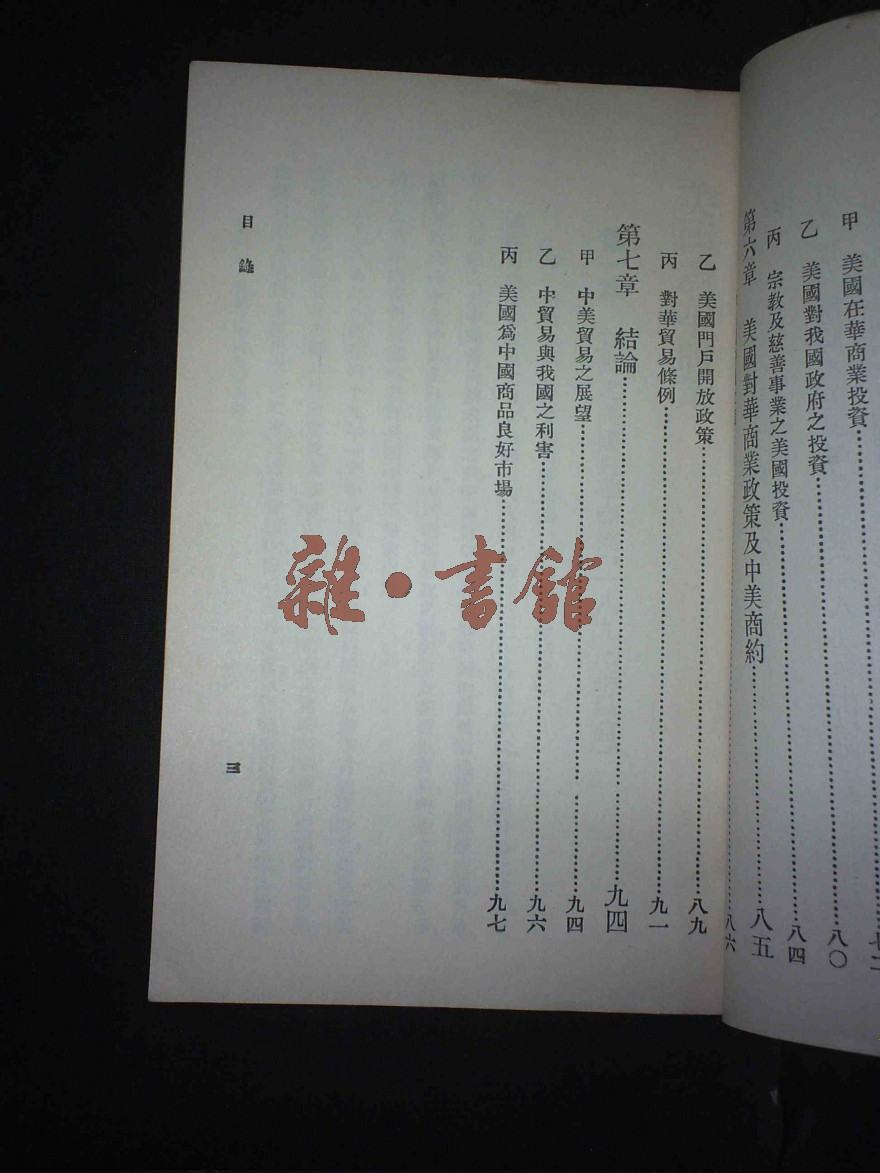 甲　美國在華商業投資………七二
乙　美國對我國政府之投資………八〇
丙　宗教及慈善事業之美國投資………八四
第六章　美國對華商業政策及中美商約………八五
………八六
乙　美國門戶開放政策………八九
丙　對華貿易條例………九一
第七章　結論………九四
甲　中美貿易之展望………九四
乙　中貿易與我國之利害………九六
丙　美國爲中國商品良好市場………九七
目錄
三
雜·書館